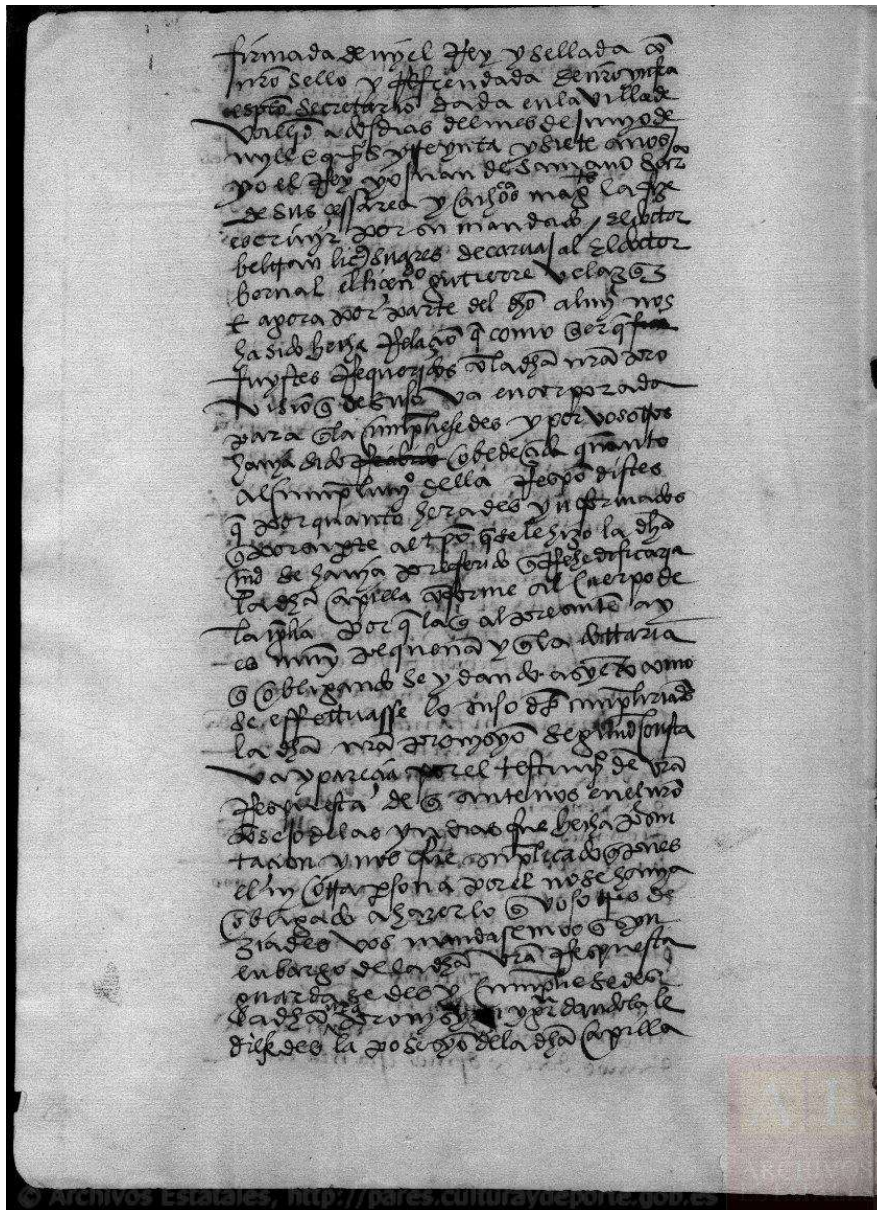 firmada de my el Rey y sellada cō
nr̄o sello y Refrendada de nr̄o ynfra
escpto secretario dada en la villa de
vallid a dos dias del mes de junyo de
myll e qios y treynta y siete años
yo el Rey yo juan de samano secrº
de sus cessarea y cathocas magt la fize
escriuyr por su mandado el doctor
beltran licdo suares de caruajal el doctor
bernal el licendº gutierre velazqz
E agora por parte del dho alny nos
ha sido hecha Relaçiō q como
fuystes Requeridos cō la dha nr̄a pro
visiō q de suso va encorporada
para q la cumpliesedes y por vosotros
hauia sido obedeçida quanto
al cumplimyº della Respōdistes
q por quanto herades ynformados
q al tpō q se le hizo la dha
md se hauia proferido q Rehedificaria
la dha capilla cōforme al cuerpo de
la yglia por q la q al presente ay
es muy pequeña y q la dottaria
q obligando se y dando asyento como
se effettuasse lo suso dho cumpliriades
la dha nr̄a prouysyō segund consta
va y pareçia por el testimyº de vr̄a
Respuesta de q ante nos en el nr̄o
cōsejo de las yndias fue hecha presen
taçion y nos fue suplicado q pues
el ny otra persona por el no se hauia
obligado a hazerlo q vosotros de
ziades vos mandasemos q syn
enbargo de la dha vr̄a Respuesta
guardasedes y cumpliesedes
la dha nr̄a prouysyō y dandole
diesedes la posesyō de la dha capilla
© Archivos Estatales, http://pares.culturaydeporte.gob.es
ARCHIVOS